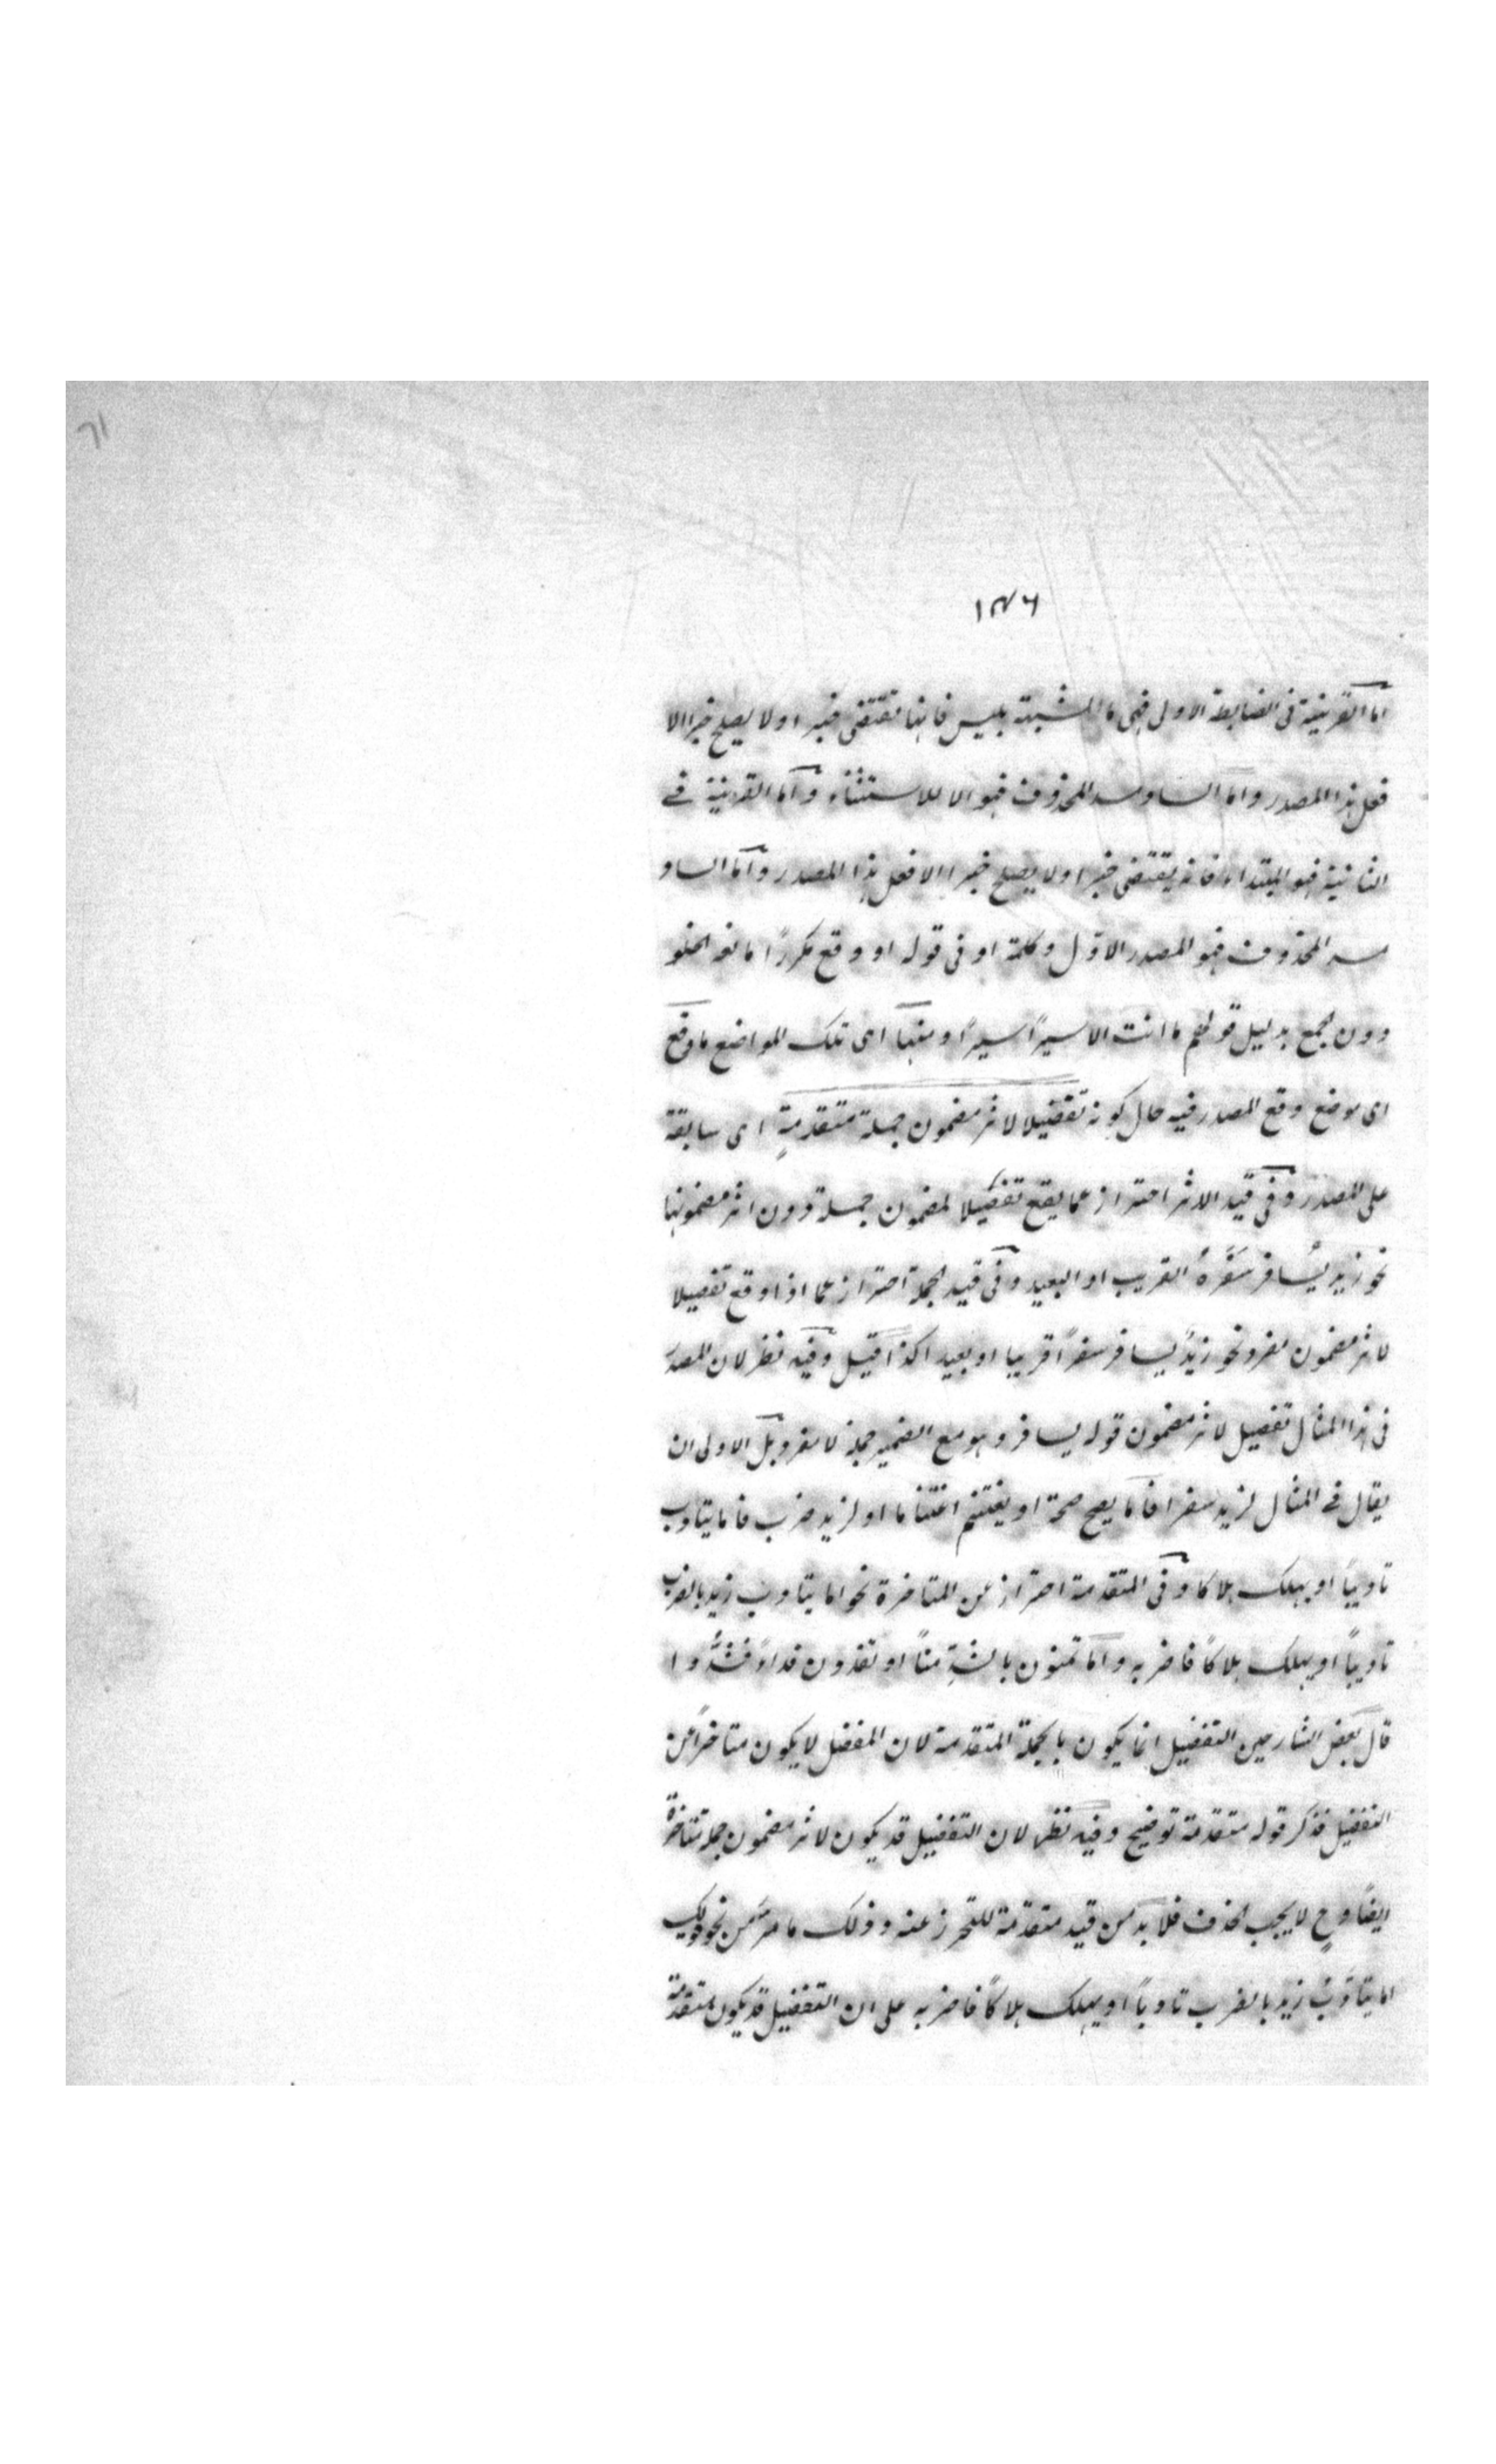 ١٣٦
اما القرينية فى الضابطة الاولى فهى ما المشبهة بليس فانها تقتضى خبرا ولا يصلح خبرا الا
فعل هذا المصدر واما الساد مسد المحذوف فهو الا للاستثناء واما القرينية فے
الثانية فهو المبتداء فانه يقتضى خبرا ولا يصلح خبرا الا فعل هذا المصدر واما الساد
مسد المحذوف فهو المصدر الاوّل وكلمة او فى قوله او وقع مكررًا مانعه الخلو
دون الجمع بدليل قولهم ما انت الا سيرًا سيرًا ومنها اى تلك المواضع ما وقع
اى موضع وقع المصدر فيه حال كونه تفصيلا لاثر مضمون جملة متقدمةٍ اى سابقة
على المصدر وفى قيد الاثر احتراز عما يقع تفصيلا لمضمون جملة دون اثر مضمونها
نحو زيد يُسافر سَفَرَهُ القريب او البعيد وفى قيد الجملة احتراز عما اذا وقع تفصيلا
لاثر مضمون مفرد نحو زيدٌ يسافر سفرًا قريبا او بعيدا كذا قيل وفيه نظر لان المصدر
فى هذا المثال تفصيل لاثر مضمون قوله يسافر وهو مع الضمير جملة لا مفرد بل الاولى ان
يقال فے المثال لزيد سفر فاما يصح صحة او يغتنم اغتناما او لزيد ضرب فاما يتادب
تاديبًا او يهلك هلاكا وفى المتقدمة احتراز عن المتاخرة نحو اما يتادب زيد بالضرب
تاديبًا او يهلك هلاكًا فاضربه واما تمنون بالشدِّ منًّا او تفدون فداءً فَشُدُّوا
قال بعض الشارحين التفصيل انما يكون بالجملة المتقدمة لان المفصل لا يكون متاخرًا عن
التفصيل فذكر قوله متقدمة توضيح وفيه نظر لان التفصيل قد يكون لاثر مضمون جملة متاخرة
ايضًا وح لا يجب الحذف فلا بد من قيد متقدّمة للتحرز عنه وذلك ما مرّ من نحو قولك
اما يتادّبُ زيد بالضرب تاديبًا او يهلك هلاكًا فاضربه على ان التفصيل قد يكون متقدمة